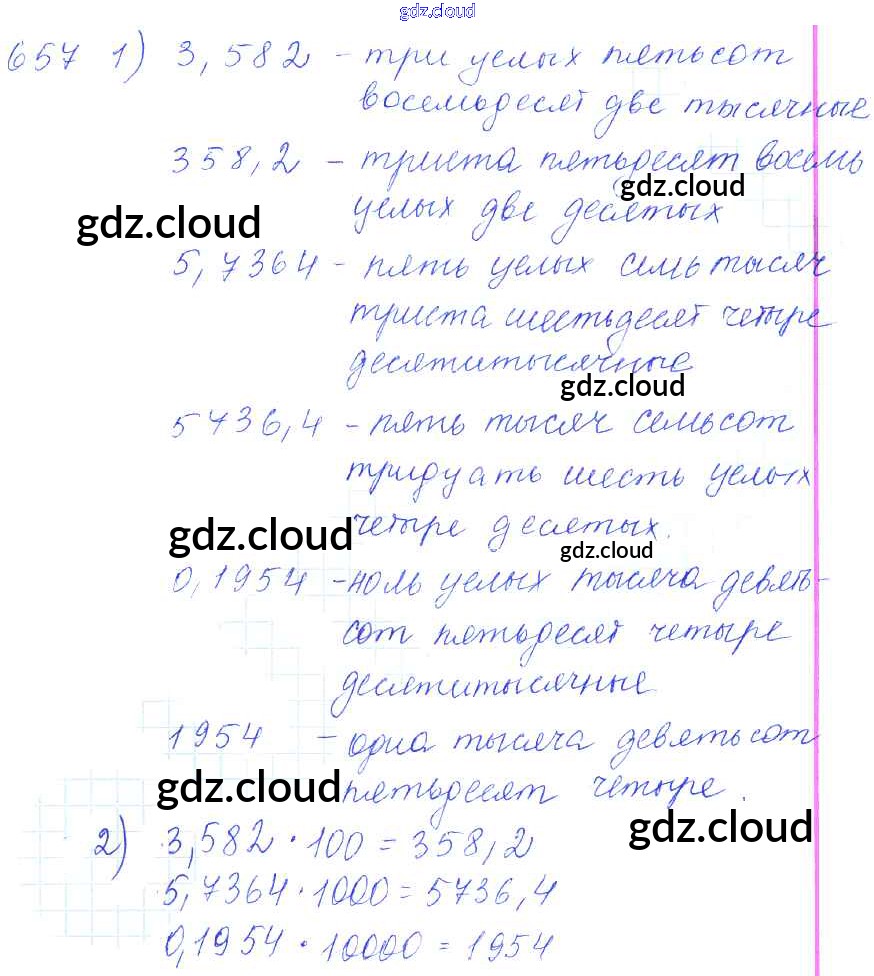 gdz.cloud
657 1) 3,582 - три целых пятьсот
восемьдесят две тысячные
358,2 - триста пятьдесят восемь
gdz.cloud
gdz.cloud
целых две десятых
5,7364 - пять целых семь тысяч
триста шестьдесят четыре
десятитысячные
gdz.cloud
5736,4 - пять тысяч семьсот
тридцать шесть целых
gdz.cloud
четыре десятых.
gdz.cloud
0,1954 - ноль целых тысяча девять-
сот пятьдесят четыре
десятитысячные
1954 - одна тысяча девятьсот
gdz.cloud
пятьдесят четыре.
gdz.cloud
2) 3,582 · 100 = 358,2
5,7364 · 1000 = 5736,4
0,1954 · 10000 = 1954